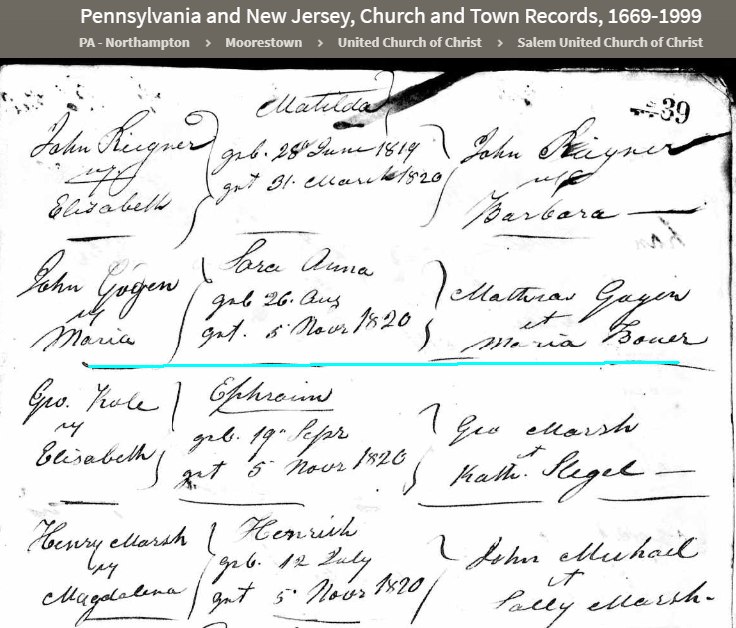 Pennsylvania and New Jersey, Church and Town Records, 1669-1999
PA - Northampton > Moorestown > United Church of Christ > Salem United Church of Christ
39
Matilda
John Riegner
uxor
Elisabeth
geb. 28 June 1819
get 31. March 1820
John Riegner
ux
Barbara
John Gögen
ux
Maria
Sara Anna
geb 26. Aug
get. 5 Novr 1820
Mathias Gögen
et
Maria Bauer
Geo. Kole
ux
Elisabeth
Ephraim
geb. 19 Sepr
get 5 Novr 1820
Geo Marsh
et
Kath. Slegel
Henry Marsh
ux
Magdalena
Henrich
geb. 12 July
get 5 Novr 1820
John Michael
et
Sally Marsh